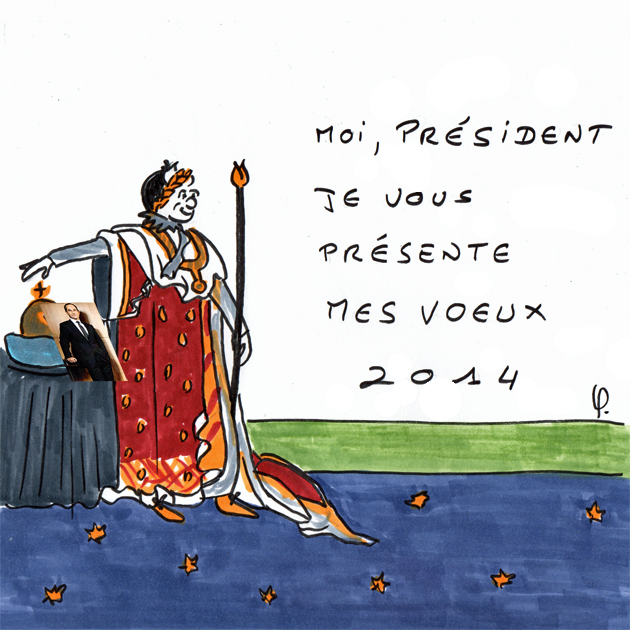 MOI, PRÉSIDENT
JE VOUS
PRÉSENTE
MES VOEUX
2014